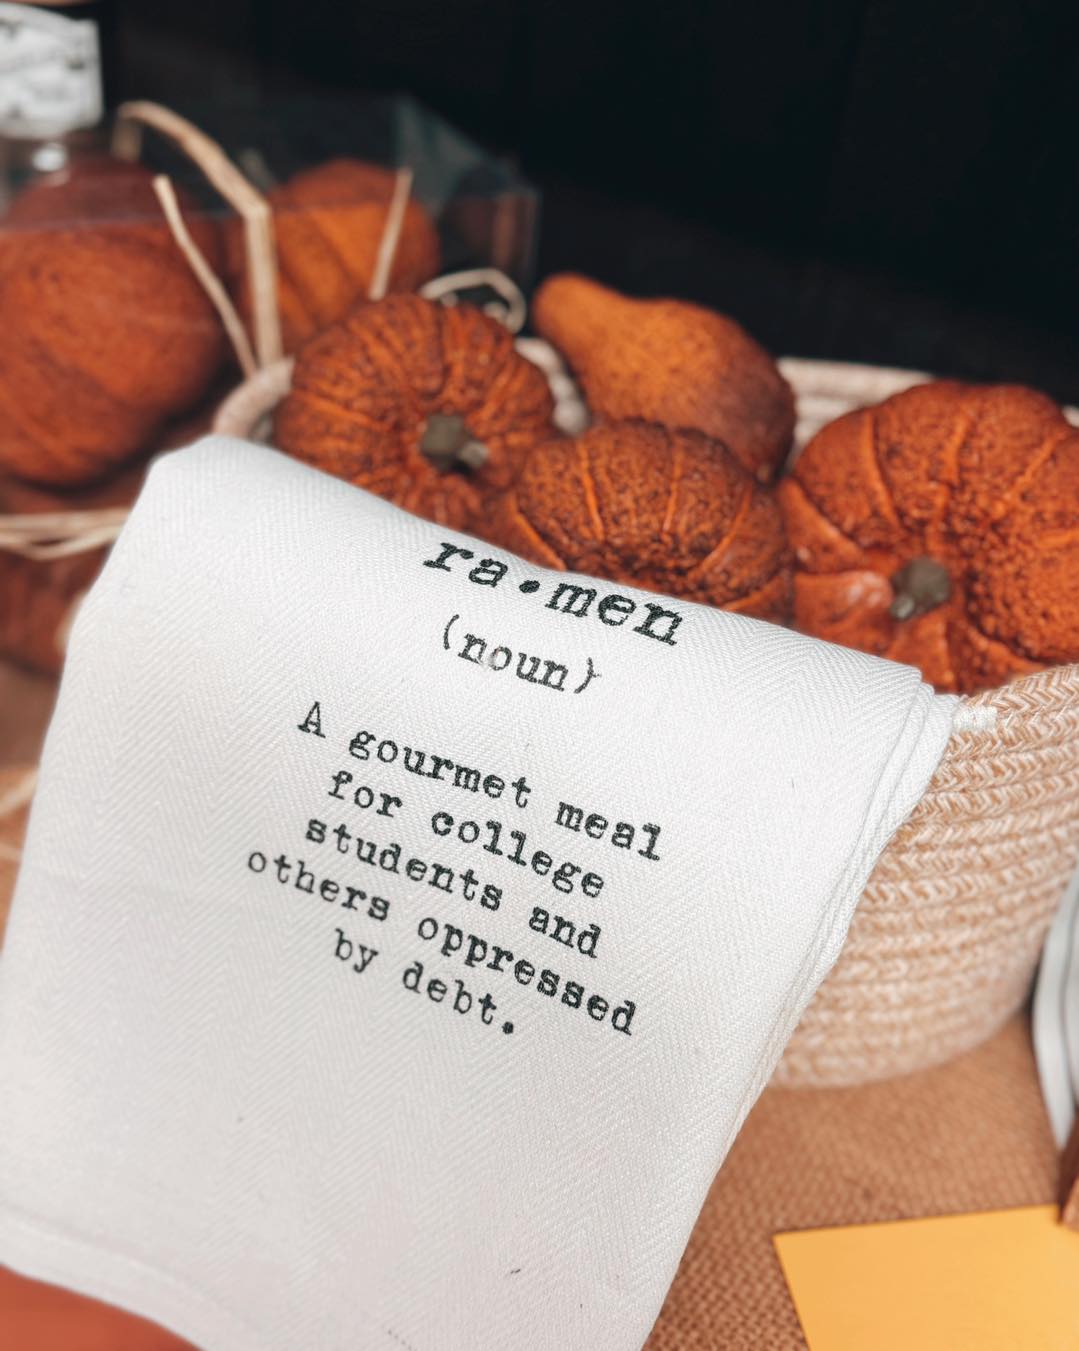 ra•men
(noun)
A gourmet meal
for college
students and
others oppressed
by debt.